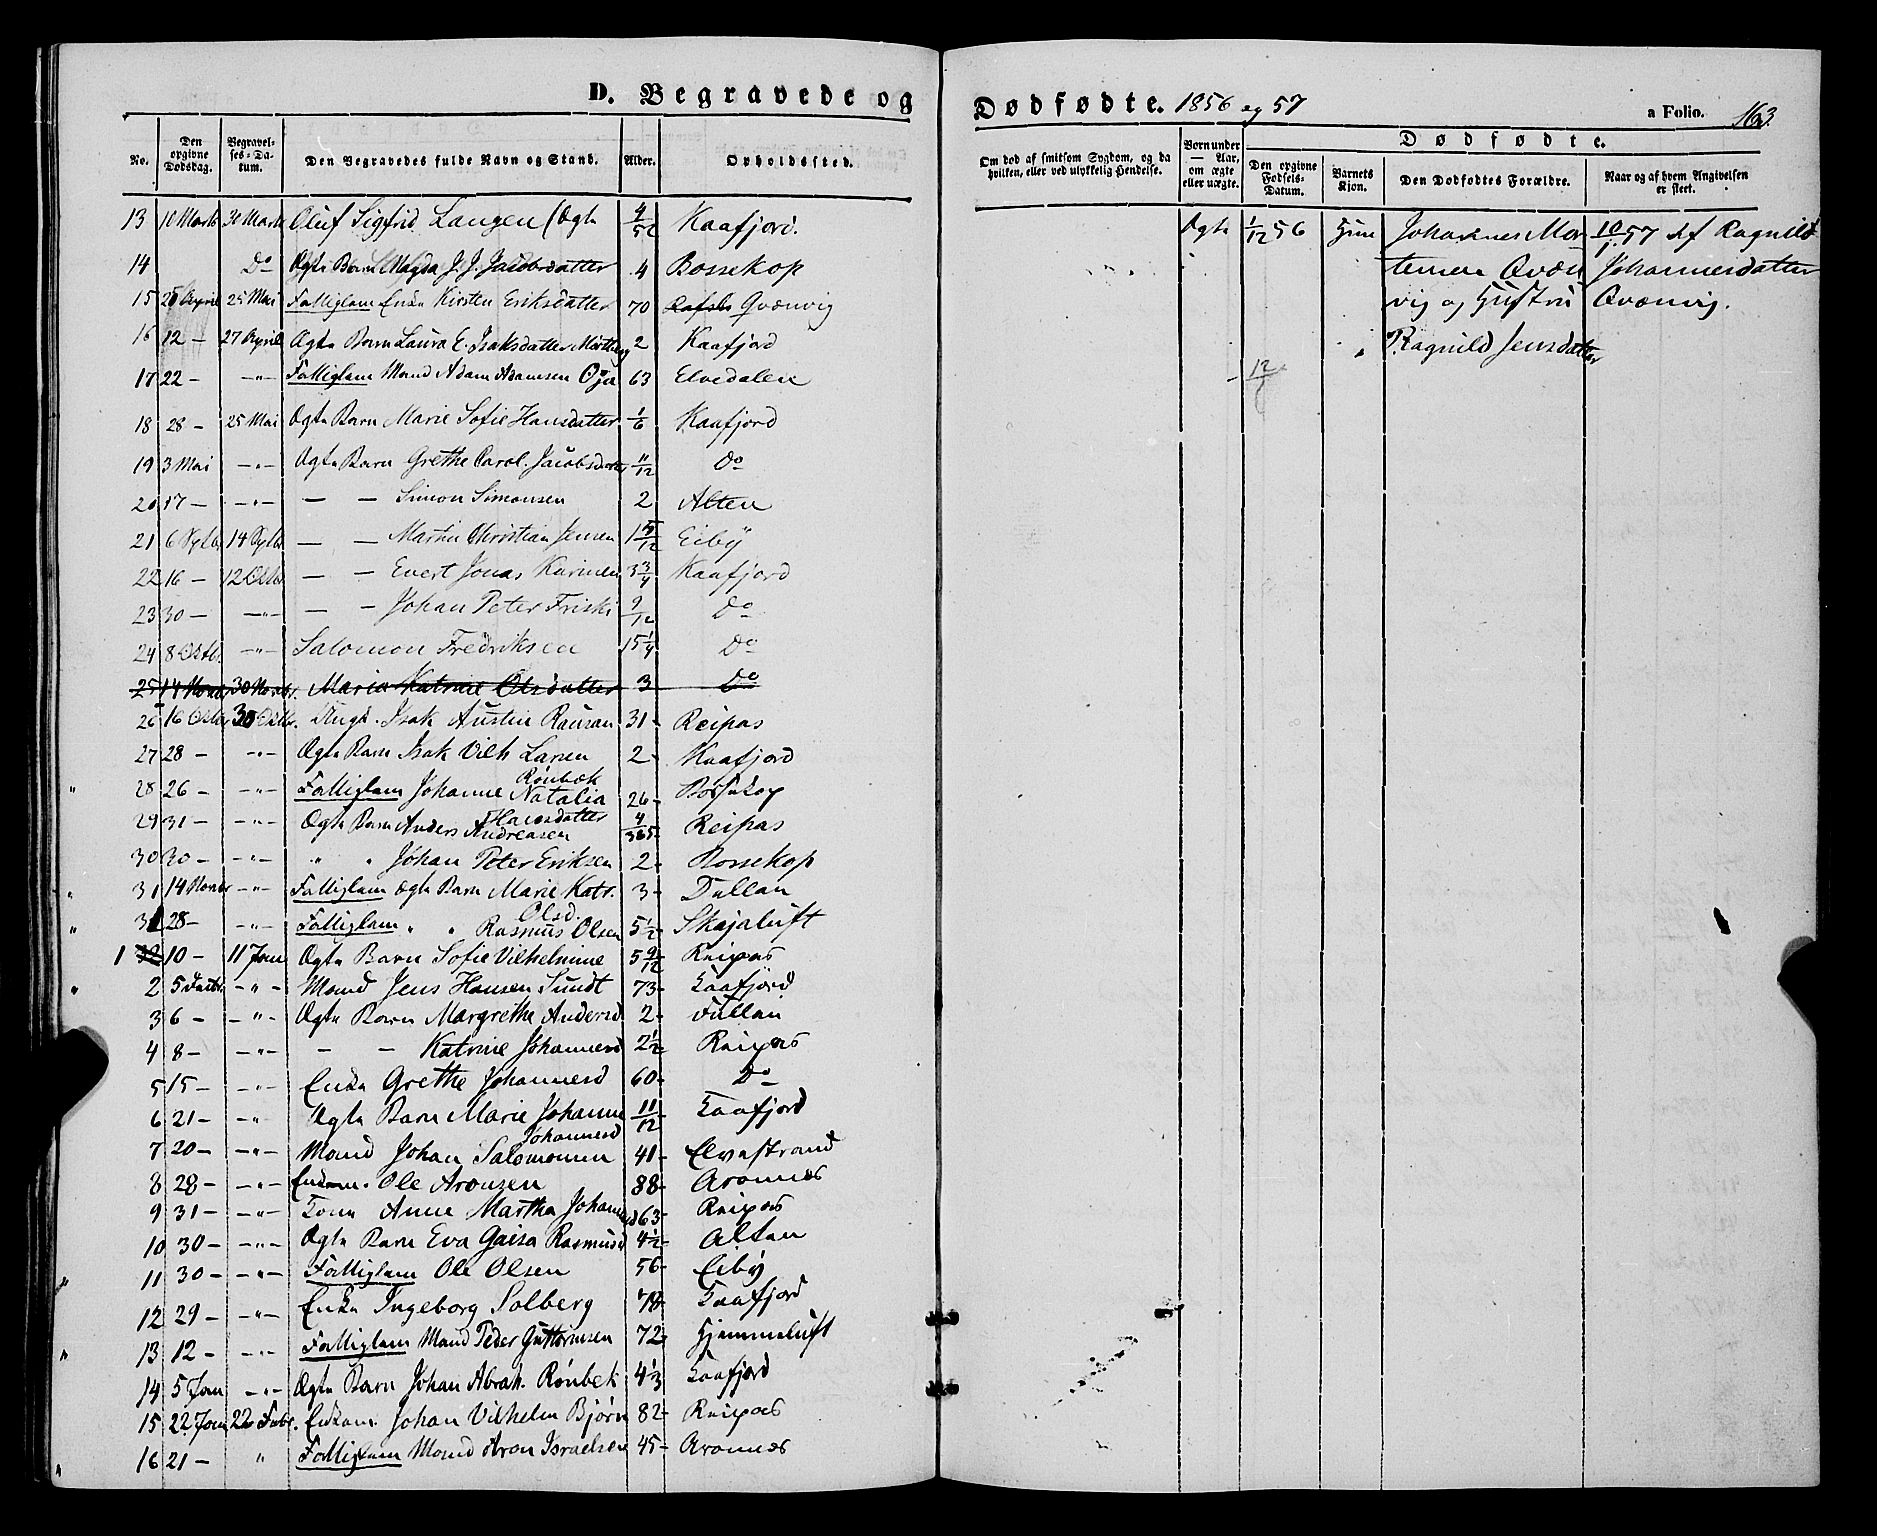 D. Begravede og
Dødfødte. 1856 og 57
a Folio. 163.
No.
Den opgivne Dødsdag.
Begravelses-Datum.
Den Begravedes fulde Navn og Stand.
Alder.
Opholdssted.
Om død af smitsom Sygdom, og da hvilken, eller ved ulykkelig Hændelse.
Børn under — Aar, om ægte eller uægte.
Dødfødte.
Den opgivne Fødsels-Datum.
Barnets Kjøn.
Den Dødfødtes Forældre.
Naar og af hvem Angivelsen er skeet.
13 30 Marts Oluf Sigfrid Langen (Ægte Kaafjord.
14 Do Ægte Barn Magda J. J. Jacobsdatter 4 Bossekop
15 April 25 Mai Fattiglem Enke Kirsten Eriksdatter 70 Qvænvig
16 12 — 27 April Ægte Barn Laura E. Isaksdatter 2 Kaafjord
17 22 - —"— Fattiglem Mand Adam Adamsen Oja 63 Elvedalen
18 28 - 25 Mai Ægte Barn Marie Sofie Hansdatter 1/6 Kaafjord
19 3 Mai —"— Ægte Barn Grethe Carol. Jacobsdatter 11/12 Do
20 17 — —"— — — Simon Simonsen 2 Alten
21 6 Sptbr 14 Sptbr — — Martin Christian Jensen 1 Eiby
22 16 — 12 Octbr — — Evert Jonas 3 3/4 Kaafjord
23 30 — —"— — — Johan Peter Friski 9/12 Do
24 8 Octbr —"— Salomon Fredriksen 15 1/4 Do
25 14 Novbr 30 Novbr. Maria Katrine Olsdatter 3 Do
26 16 Octbr 30 Octbr. Ungk. Isak Austin 31 - Reipas
27 28 — —"— Ægte Barn Isak Vilh Larsen 2 - Kaafjord
28 26 — —"— Fattiglem Johanne Natalia Rönbæk 26 - Bossekop
29 31 — —"— Ægte Barn Anders Andreasen Hansdatter 4/365 Reipas
30 30 — —"— " " Johan Peter Eriksen 2 - Bossekop
31 14 Novbr —"— Fattiglem ægte Barn Marie Katr. 3 - Tullan
28 — —"— Fattiglem " " Olsd. Rasmus Olsen 5 1/2 Skajaluft
1 10 — 11 Jan Ægte Barn Sofie Vilhelmine 5 9/12 Reipas
2 5 —"— Mand Jens Hansen Sundt 73 - Kaafjord
3 6 — —"— Ægte Barn Margrethe Andersd 2 - Tullan
4 8 — —"— — — Katrine Johannesd 2 1/2 Reipas
5 15 — —"— Enke Grethe Johannesd 60 - Do
6 21 — —"— Ægte Barn Marie Johanne 11/12 Kaafjord
Johannesd
7 20 — —"— Mand Johan Salomonsen 41 - Elvestrand
8 28 — —"— Enkem. Ole Aronsen 88 - Aronnes
9 31 — —"— Kone Anne Martha Johannesd 63 - Reipas
10 30 — —"— Ægte Barn Eva Gaisa Rasmusd 4 1/2 Alten
11 30 — —"— Fattiglem Ole Olsen 56 - Eiby
12 29 — —"— Enke Ingeborg Solberg 78 Kaafjord
13 12 — —"— Fattiglem Mand Peder Guttormsen 72 Hjemmeluft
14 5 Jan —"— Ægte Barn Johan Abrah. Rönbek 4 1/3 Kaafjord
15 22 Jan 22 Febr. Enkem. Johan Vilhelm Bjørn 82 - Reipas
16 21 — " Fattiglem Mand Aron Israelsen 45 - Aronnes
Ægte 1/12 56 Johannes Mor 10/1 57 af Ragnild
tensen Qvæn Johannesdatter
vig og Hustru Qvænvig.
Ragnild Jensdatter
12/1